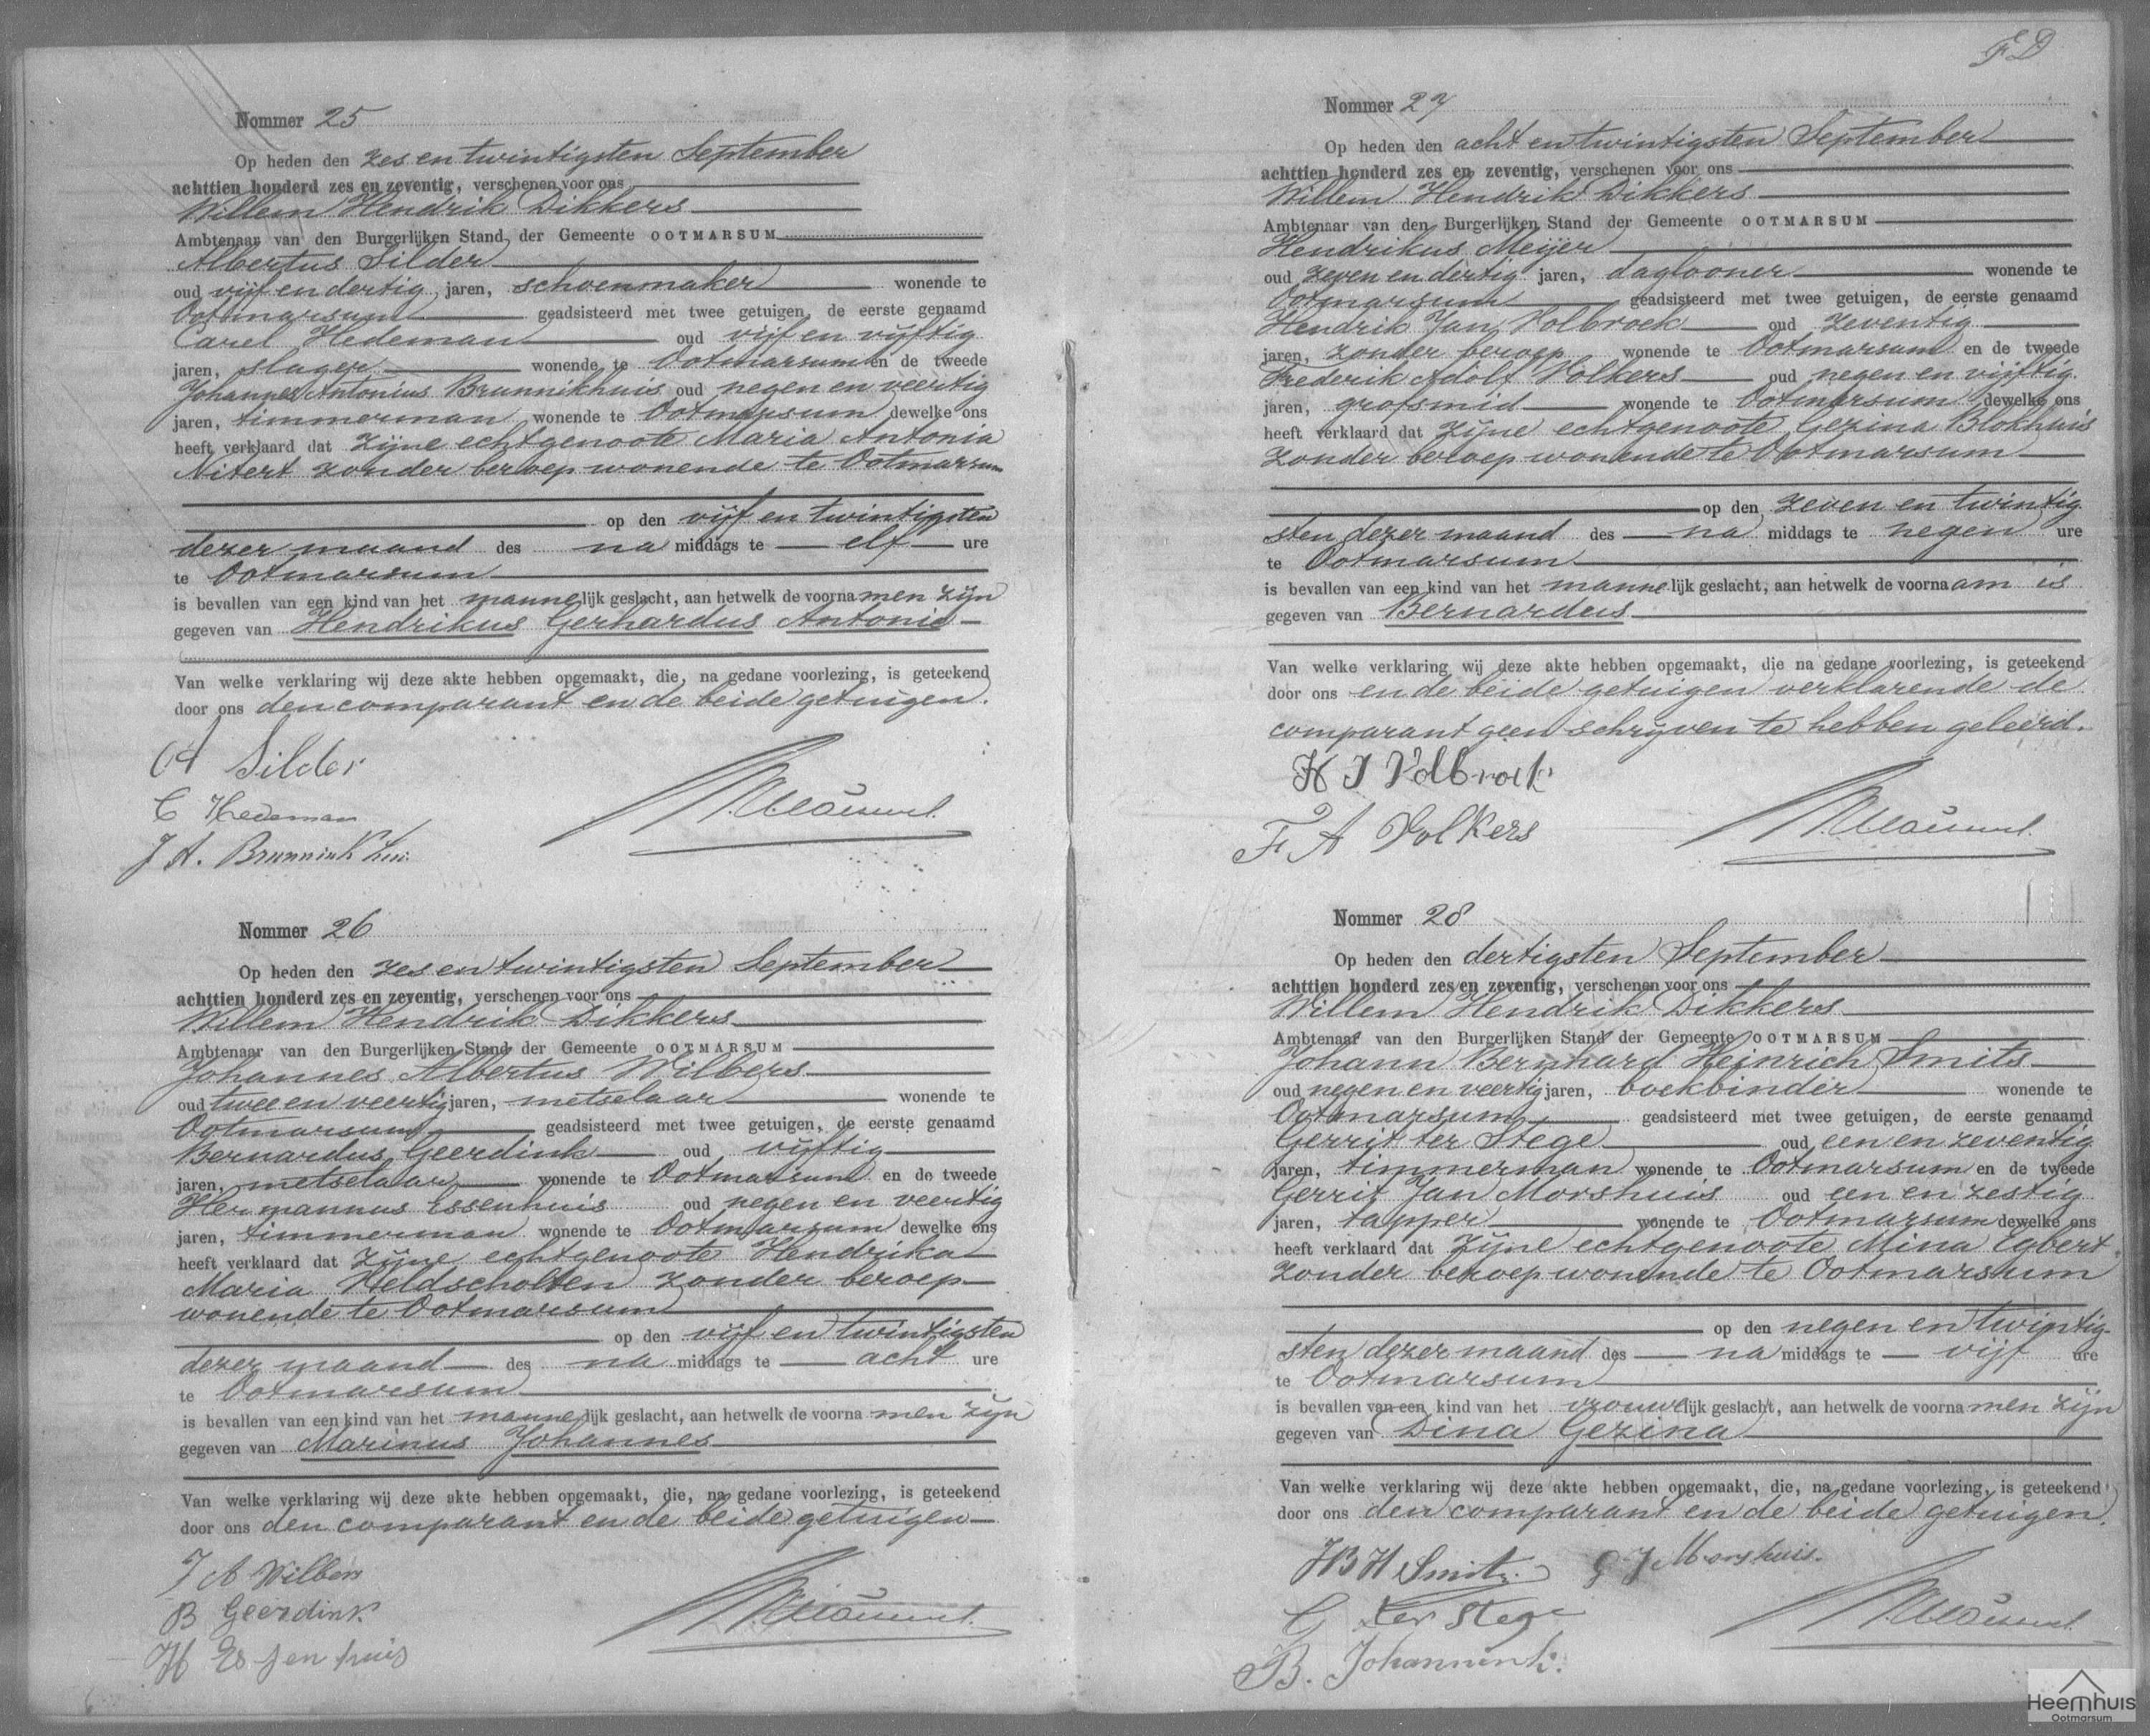 Nommer 25
Op heden den zes en twintigsten September
achttien honderd zes en zeventig, verschenen voor ons
Willem Hendrik Dikkers
Ambtenaar van den Burgerlijken Stand der Gemeente OOTMARSUM
Albertus Silder
oud vijf en dertig jaren, schoenmaker wonende te
Ootmarsum geadsisteerd met twee getuigen, de eerste genaamd
Carel Hedeman oud vijf en vijftig
jaren, slager wonende te Ootmarsum en de tweede
Johannes Antonius Brunnikhuis oud negen en veertig
jaren, timmerman wonende te Ootmarsum dewelke ons
heeft verklaard dat zijne echtgenoote Maria Antonia
Nitert zonder beroep wonende te Ootmarsum
op den vijf en twintigsten
dezer maand des na middags te elf ure
te Ootmarsum
is bevallen van een kind van het mannelijk geslacht, aan hetwelk de voornamen zijn
gegeven van Hendrikus Gerhardus Antonie
Van welke verklaring wij deze akte hebben opgemaakt, die, na gedane voorlezing, is geteekend
door ons den comparant en de beide getuigen.
A Silder
C Hedeman
J A. Brunninkhuis
Nommer 26
Op heden den zes en twintigsten September
achttien honderd zes en zeventig, verschenen voor ons
Willem Hendrik Dikkers
Ambtenaar van den Burgerlijken Stand der Gemeente OOTMARSUM
Johannes Albertus Wilbers
oud twee en veertig jaren, metselaar wonende te
Ootmarsum geadsisteerd met twee getuigen, de eerste genaamd
Bernardus Geerdink oud vijftig
jaren, metselaar wonende te Ootmarsum en de tweede
Hermannus Essenhuis oud negen en veertig
jaren, timmerman wonende te Ootmarsum dewelke ons
heeft verklaard dat zijne echtgenoote Hendrika
Maria Heldscholten zonder beroep
wonende te Ootmarsum
op den vijf en twintigsten
dezer maand des na middags te acht ure
te Ootmarsum
is bevallen van een kind van het mannelijk geslacht, aan hetwelk de voornamen zijn
gegeven van Marinus Johannes
Van welke verklaring wij deze akte hebben opgemaakt, die, na gedane voorlezing, is geteekend
door ons den comparant en de beide getuigen
J A Wilbers
B Geerdink
H Essenhuis
Nommer 27
Op heden den acht en twintigsten September
achttien honderd zes en zeventig, verschenen voor ons
Willem Hendrik Dikkers
Ambtenaar van den Burgerlijken Stand der Gemeente OOTMARSUM
Hendrikus Meijer
oud zeven en dertig jaren, daglooner wonende te
Ootmarsum geadsisteerd met twee getuigen, de eerste genaamd
Hendrik Jan Volbroek oud zeventig
jaren, zonder beroep wonende te Ootmarsum en de tweede
Frederik Adolf Volkers oud negen en vijftig
jaren, grofsmid wonende te Ootmarsum dewelke ons
heeft verklaard dat zijne echtgenoote Gezina Blokhuis
zonder beroep wonende te Ootmarsum
op den zeven en twintig
sten dezer maand des na middags te negen ure
te Ootmarsum
is bevallen van een kind van het mannelijk geslacht, aan hetwelk de voornaam is
gegeven van Bernardus
Van welke verklaring wij deze akte hebben opgemaakt, die na gedane voorlezing, is geteekend
door ons en de beide getuigen verklarende de
comparant geen schrijven te hebben geleerd.
H J Volbroek
F A Volkers
Nommer 28
Op heden den dertigsten September
achttien honderd zes en zeventig, verschenen voor ons
Willem Hendrik Dikkers
Ambtenaar van den Burgerlijken Stand der Gemeente OOTMARSUM
Johann Bernhard Heinrich Smits
oud negen en veertig jaren, boekbinder wonende te
Ootmarsum geadsisteerd met twee getuigen, de eerste genaamd
Gerrit ter Stege oud een en zeventig
jaren, timmerman wonende te Ootmarsum en de tweede
Gerrit Jan Morshuis oud een en zestig
jaren, tapper wonende te Ootmarsum dewelke ons
heeft verklaard dat zijne echtgenoote Mina Egbert
zonder beroep wonende te Ootmarsum
op den negen en twintig
sten dezer maand des na middags te vijf ure
te Ootmarsum
is bevallen van een kind van het vrouwelijk geslacht, aan hetwelk de voornamen zijn
gegeven van Dina Gezina
Van welke verklaring wij deze akte hebben opgemaakt, die, na gedane voorlezing, is geteekend
door ons den comparant en de beide getuigen.
JBH Smits G J Morshuis.
G ter Stege
B. Johannink.
Heemhuis
Ootmarsum